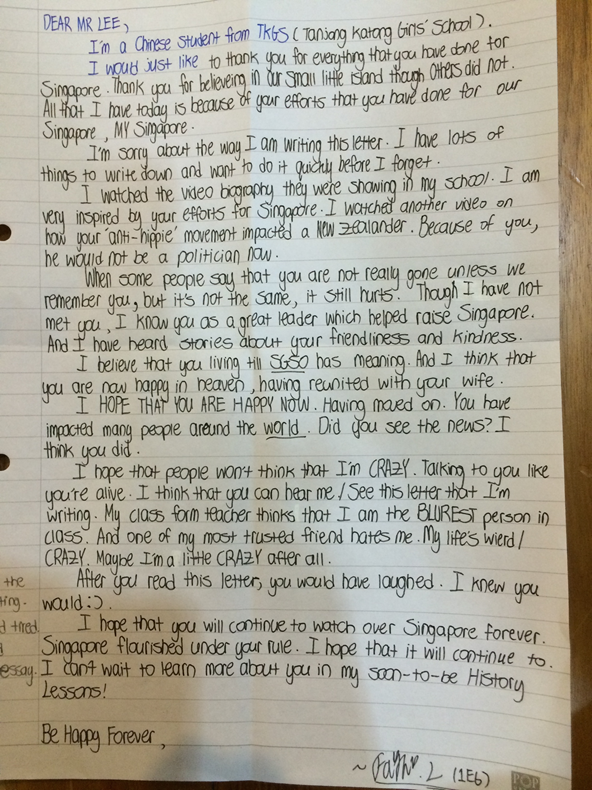 DEAR MR LEE,
I'm a Chinese student from TKGS (Tanjong Katong Girls' School).
I would just like to thank you for everything that you have done for
Singapore. Thank you for believeing in our small little island though others did not.
All that I have today is because of your efforts that you have done for our
Singapore, MY Singapore.
I'm sorry about the way I am writing this letter. I have lots of
things to write down and want to do it quickly before I forget.
I watched the video biography they were showing in my school. I am
very inspired by your efforts for Singapore. I watched another video on
how your 'anti-hippie' movement impacted a New Zealander. Because of you,
he would not be a politician now.
When some people say that you are not really gone unless we
remember you, but it's not the same, it still hurts. Though I have not
met you, I know you as a great leader which helped raise Singapore.
And I have heard stories about your friendliness and kindness.
I believe that you living till SG50 has meaning. And I think that
you are now happy in heaven, having reunited with your wife.
I HOPE THAT YOU ARE HAPPY NOW. Having moved on. You have
impacted many people around the world. Did you see the news? I
think you did.
I hope that people won't think that I'm CRAZY. Talking to you like
you're alive. I think that you can hear me / See this letter that I'm
writing. My class form teacher thinks that I am the BLUREST person in
class. And one of my most trusted friend hates me. My life's wierd /
CRAZY. Maybe I'm a little CRAZY after all.
After you read this letter, you would have laughed. I knew you
would :).
I hope that you will continue to watch over Singapore forever.
Singapore flourished under your rule. I hope that it will continue to.
I can't wait to learn more about you in my soon-to-be History
Lessons!
Be Happy Forever,
~ Faith. L (1E6)
POP
the
ting.
d tired.
essay.